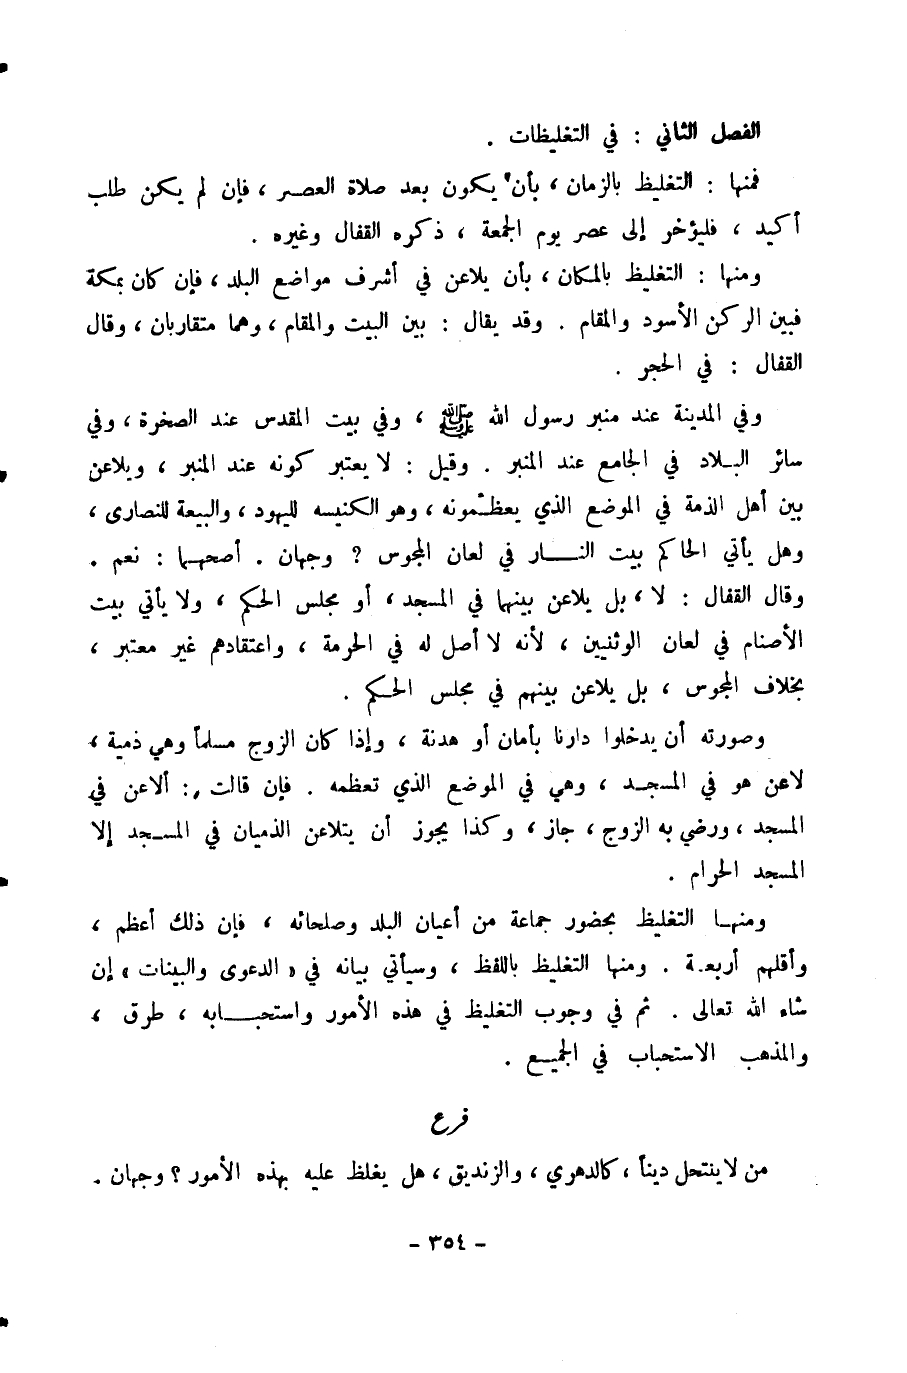 الفصل الثاني : في التغليظات .
فمنها : التغليظ بالزمان ، بأن يكون بعد صلاة العصر ، فإن لم يكن طلب
أكيد ، فليؤخر إلى عصر يوم الجمعة ، ذكره القفال وغيره .
ومنها : التغليظ بالمكان ، بأن يلاعن في أشرف مواضع البلد ، فإن كان بمكة
فبين الركن الأسود والمقام . وقد يقال : بين البيت والمقام ، وهما متقاربان ، وقال
القفال : في الحجر .
وفي المدينة عند منبر رسول الله ﷺ ، وفي بيت المقدس عند الصخرة ، وفي
سائر البلاد في الجامع عند المنبر . وقيل : لا يعتبر كونه عند المنبر ، ويلاعن
بين أهل الذمة في الموضع الذي يعظّمونه ، وهو الكنيسه لليهود ، والبيعة للنصارى ،
وهل يأتي الحاكم بيت النار في لعان المجوس ؟ وجهان . أصحهما : نعم .
وقال القفال : لا ، بل يلاعن بينهما في المسجد ، أو مجلس الحكم ، ولا يأتي بيت
الأصنام في لعان الوثنيين ، لأنه لا أصل له في الحرمة ، واعتقادهم غير معتبر ،
بخلاف المجوس ، بل يلاعن بينهم في مجلس الحكم .
وصورته أن يدخلوا دارنا بأمان أو هدنة ، وإذا كان الزوج مسلماً وهي ذمية ،
لاعن هو في المسجد ، وهي في الموضع الذي تعظمه . فإن قالت : ألاعن في
المسجد ، ورضي به الزوج ، جاز ، وكذا يجوز أن يتلاعن الذميان في المسجد إلا
المسجد الحرام .
ومنها التغليظ بحضور جماعة من أعيان البلد وصلحائه ، فإن ذلك أعظم ،
وأقلهم أربعة . ومنها التغليظ باللفظ ، وسيأتي بيانه في « الدعوى والبينات » إن
شاء الله تعالى . ثم في وجوب التغليظ في هذه الأمور واستحبابه ، طرق ،
والمذهب الاستحباب في الجميع .
فرع
من لا ينتحل ديناً ، كالدهوي ، والزنديق ، هل يغلظ عليه بهذه الأمور ؟ وجهان .
- ٣٥٤ -